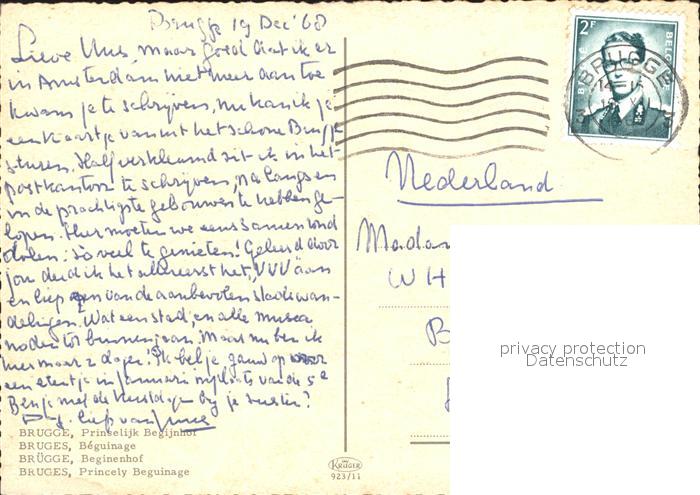 Brugge 19 Dec '68
Lieve Uus, maar goed dat ik er
in Amsterdam niet meer aan toe
kwam je te schrijven, nu kan ik je
een kaartje vanuit het schone Brugge
sturen. Half verkleumd zit ik in het
postkantoor te schrijven, na langs en
in de prachtigste gebouwen te hebben ge-
lopen. Hier moeten we eens samen rond
dolen: zo veel te genieten! Geleerd door
jou deed ik het allereerst het VVV aan
en liep een van de aanbevolen stadswan-
delingen. Wat een stad, en alle musea
noden tot binnengaan. Maar nu ben ik
hier maar 2 dagen! Ik bel je gauw op voor
een etentje in januari in plaats van de 5e
Ben je met de kerstdagen bij je zuster?
Dag. liefs van
Nederland
Madam
WH
B
BRUGGE
2F
BELGIE
BRUGGE, Prinselijk Begijnhof
BRUGES, Béguinage
BRÜGGE, Beginenhof
BRUGES, Princely Beguinage
KRÜGER
923/11
privacy protection
Datenschutz